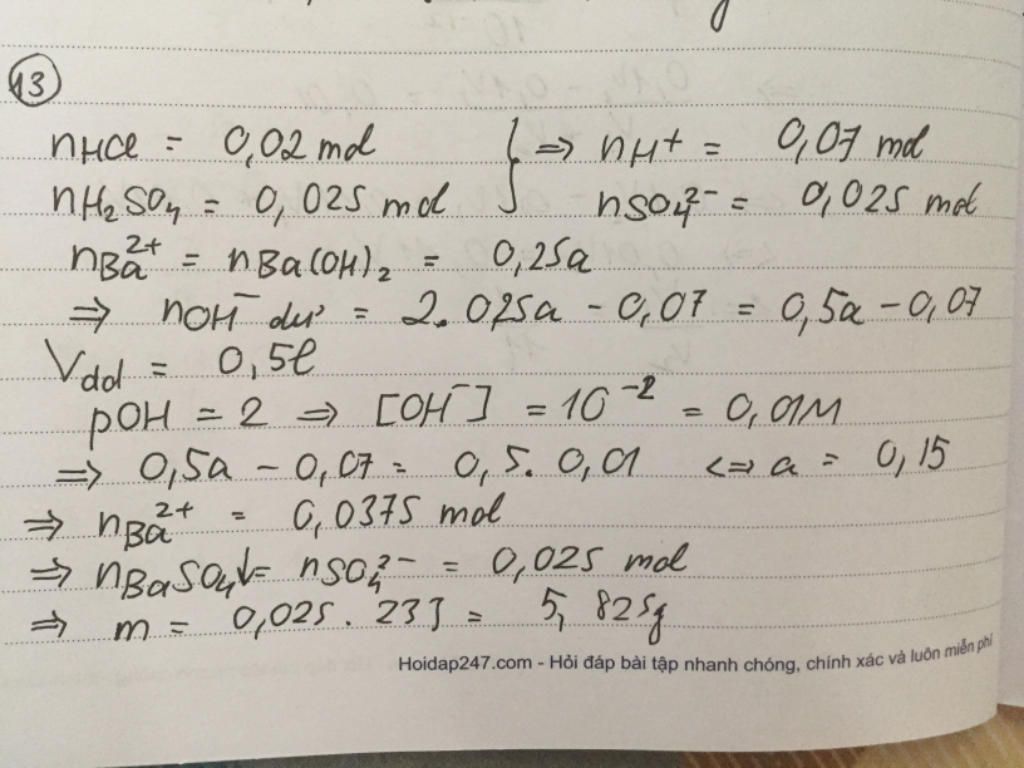 13
nHCl = 0,02 mol } => nH+ = 0,07 mol
nH2SO4 = 0,025 mol nSO4 2- = 0,025 mol
nBa2+ = nBa(OH)2 = 0,25a
=> nOH- dư = 2. 0,25a - 0,07 = 0,5a - 0,07
Vdd = 0,5l
pOH = 2 => [OH-] = 10^-2 = 0,01M
=> 0,5a - 0,07 = 0,5. 0,01 <=> a = 0,15
=> nBa2+ = 0,0375 mol
=> nBaSO4↓ = nSO4 2- = 0,025 mol
=> m = 0,025 . 233 = 5,825g
Hoidap247.com - Hỏi đáp bài tập nhanh chóng, chính xác và luôn miễn phí